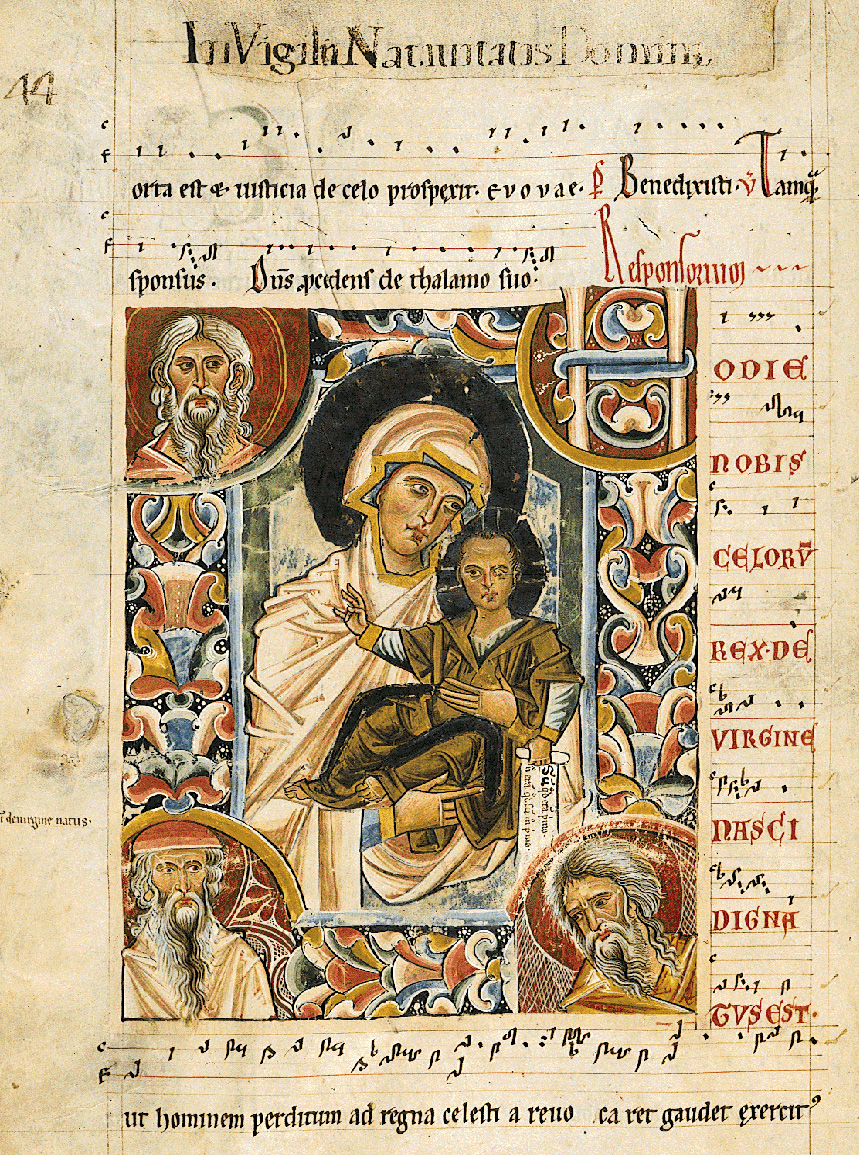 In Vigilia Natiuitatis Domini
44
orta est & iusticia de celo prospexit. Evovae. Benedixisti. Tamq̄
sponsus. Dn̄s p̱cedens de thalamo suo. Responsorium
H
ODIE
NOBIS
CELORV̄
REX·DE
VIRGINE
NASCI
DIGNA
TUS EST·
de uirgine natus.
ut hominem perditum ad regna celesti a reuo ca ret gaudet exercit᾿